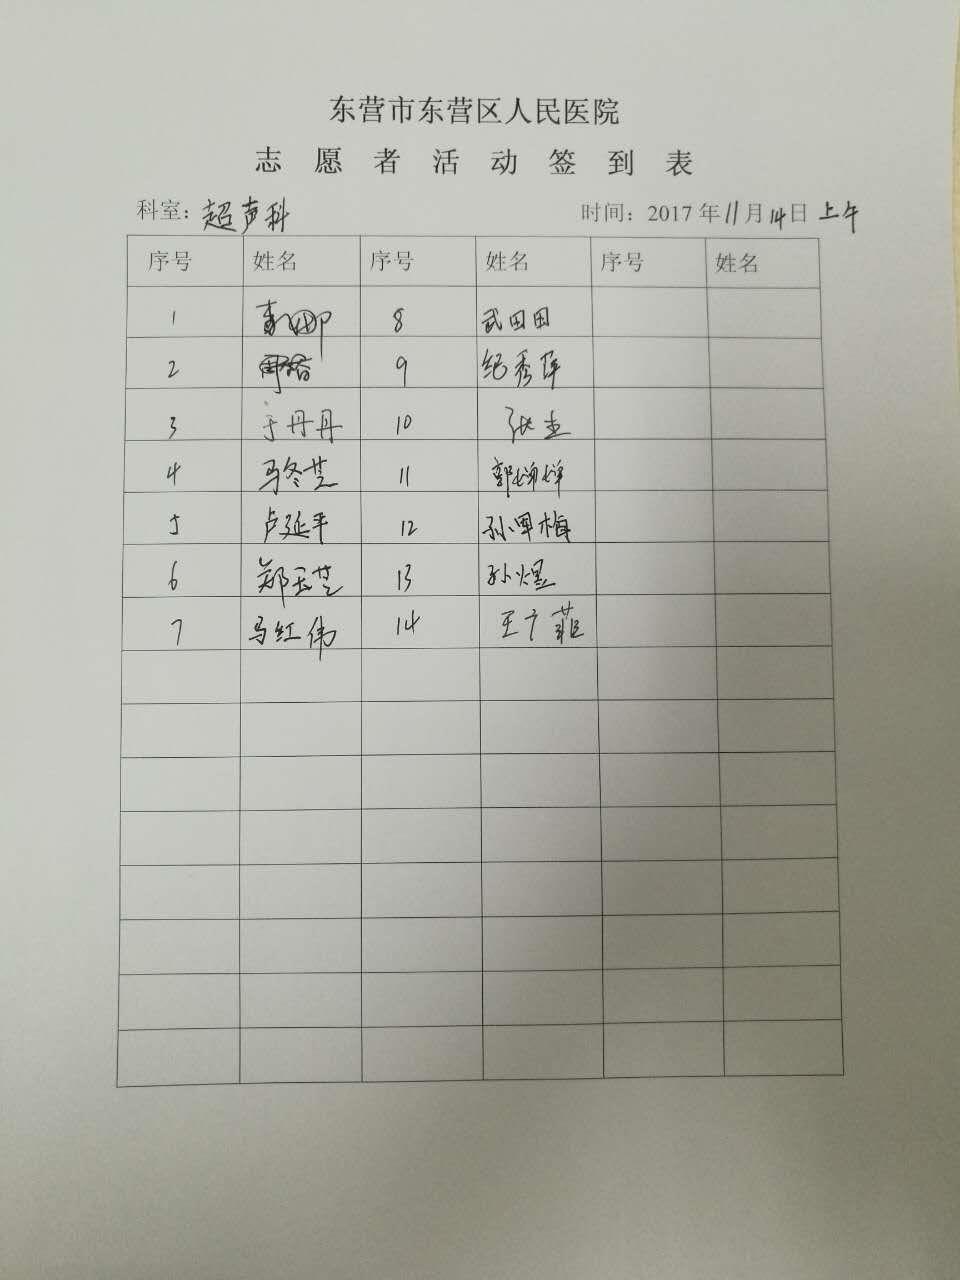 东营市东营区人民医院
志愿者活动签到表
科室：超声科 时间：2017年11月14日上午
序号 姓名 序号 姓名 序号 姓名
1 8 武田田
2 9 纪秀萍
3 于丹丹 10 张杰
4 马冬芝 11 郭婵婵
5 卢延平 12 孙军梅
6 郑玉芝 13 孙煜
7 马红伟 14 王广菲